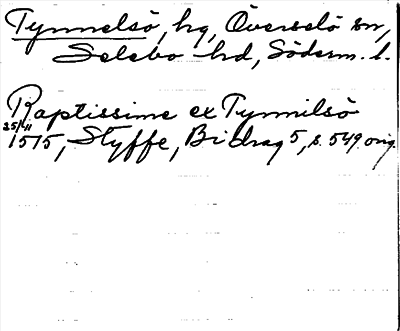 Tynnelsö, hg, Överselö sn,
Selebo hd, Söderm. l.
Raptissime ex Tynnilsö
25/4
1515, Styffe, Bidrag 5, s. 549 orig.